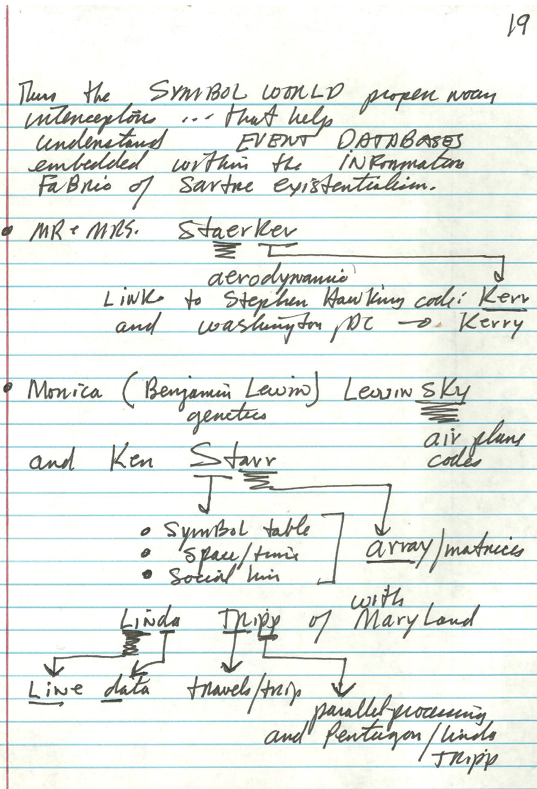 19
Thus the SYMBOL WORLD proper noun
interceptors ... that help
understand EVENT DATABASES
embedded within the INFORMATION
FABRIC of Sartre existentialism.
• MR & MRS. Staerker
aerodynamic
Links to Stephen Hawking code: Kerr
and Washington, DC → Kerry
• Monica (Benjamin Lewin) Lewinsky
genetics
air plane
codes
and Ken Starr
• Symbol table
• Space/time
• Social
array/matrices
with
Linda TRIPP of MaryLand
Line data travels/trip
parallel-processing
and Pentagon/Linda
TRIPP